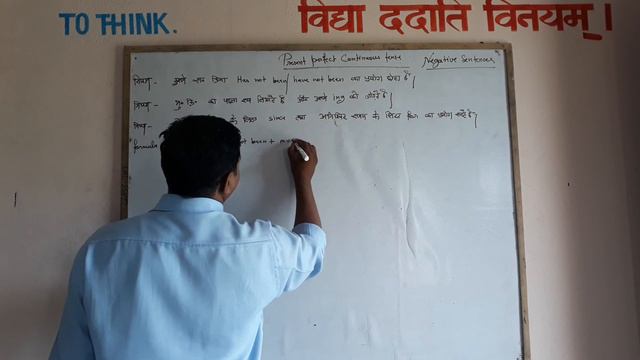 TO THINK.
विद्या ददाति विनयम्।
Present perfect Continuous tense Negative Sentences
नियम- इसमें सहा. क्रिया Has not been/ have not been का प्रयोग होता है।
नियम- मु० क्रि० का पहला रूप लिखते हैं और उसमें ing को जोड़ते हैं।
नियम- के लिए since तथा समय के लिए for का प्रयोग करते हैं।
formula not been +